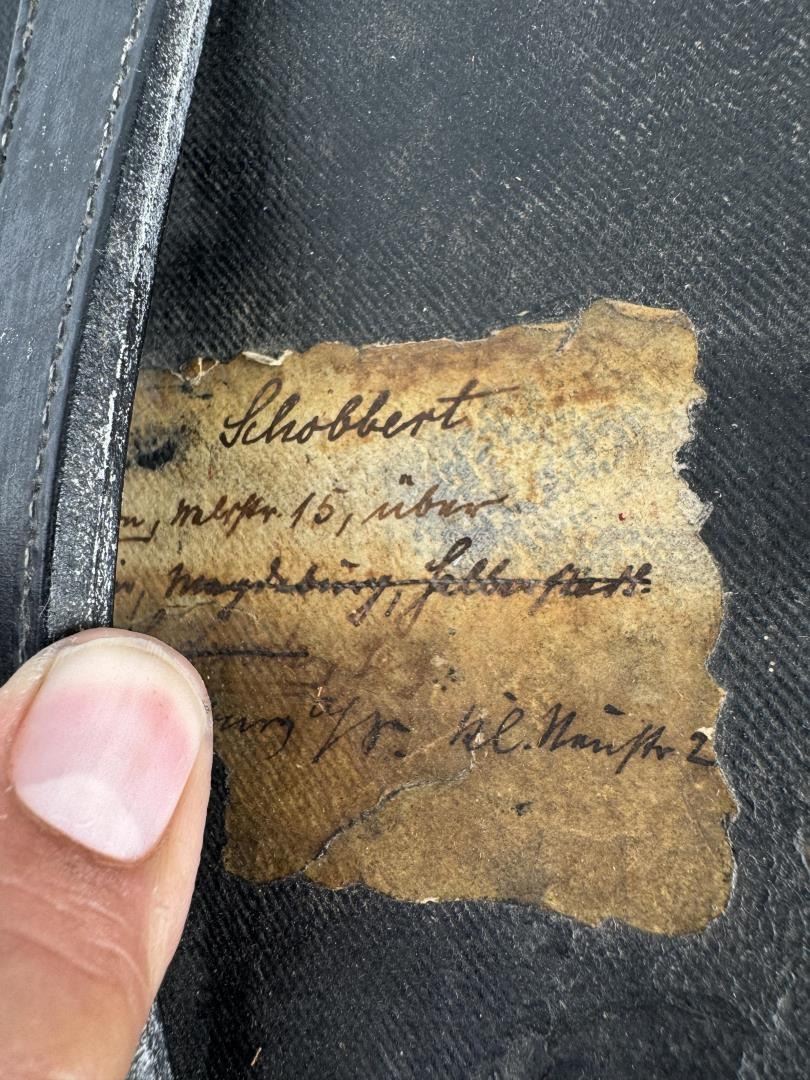 Schobbert
n, Weststr. 15, über
Magdeburg, Halberstadt.
burg a/S. kl. Neustr 2